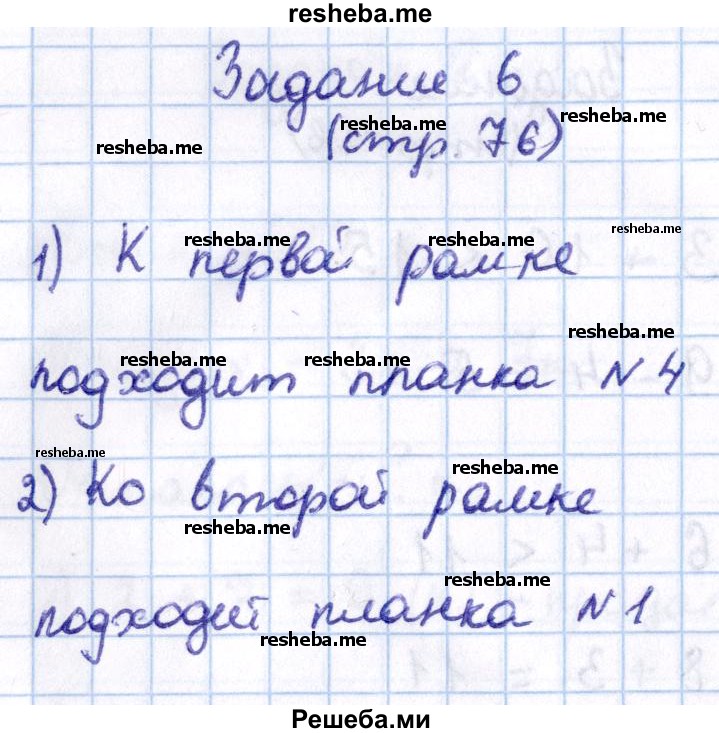 resheba.me
Задание 6
(стр. 76)
resheba.me resheba.me resheba.me
resheba.me resheba.me resheba.me
1) К первой рамке
resheba.me
подходит планка N 4
resheba.me resheba.me
resheba.me resheba.me
2) Ко второй рамке
resheba.me
resheba.me
подходит планка N 1
resheba.me
Решеба.ми